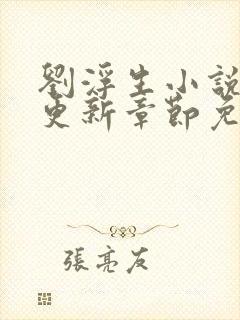 劉浮生小說
更新章節免
張亮友